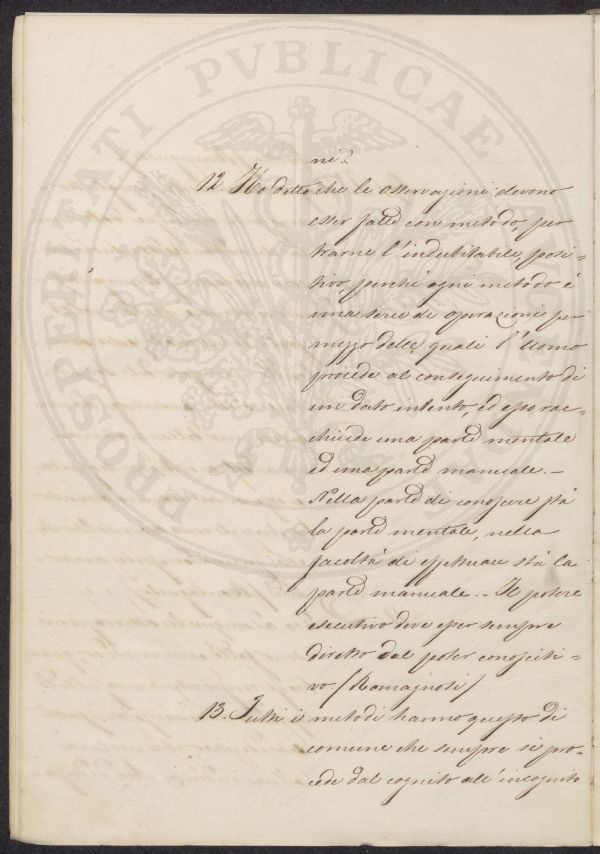 PROSPERITATI PVBLICAE
ni.
12. Ho detto che le osservazioni devono
esser fatte con metodo, per
trarne l'indubitabile posi=
tivo, perchè ogni metodo è
una serie di operazioni per
mezzo delle quali l'Uomo
procede al conseguimento di
un dato intento, ed esso rac=
chiude una parte mentale
ed una parte manuale. –
Nella parte di conoscere stà
la parte mentale, nella
facoltà di effettuare stà la
parte manuale. – Il potere
esecutivo deve esser sempre
diretto dal poter conosciti=
vo. (Romagnosi)
13. Tutti i metodi hanno questo di
comune che sempre si pro=
cede dal cognito all'incognito